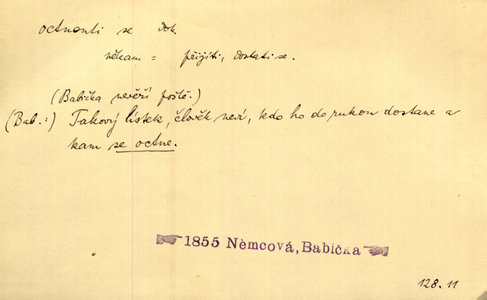 octnouti se dok.
někam = přijíti, dostati se.
(Babička nevěří poště.)
(Bab.:) Takový lístek, člověk neví, kdo ho do rukou dostane a
kam se octne.
1855 Němcová, Babička
128.11